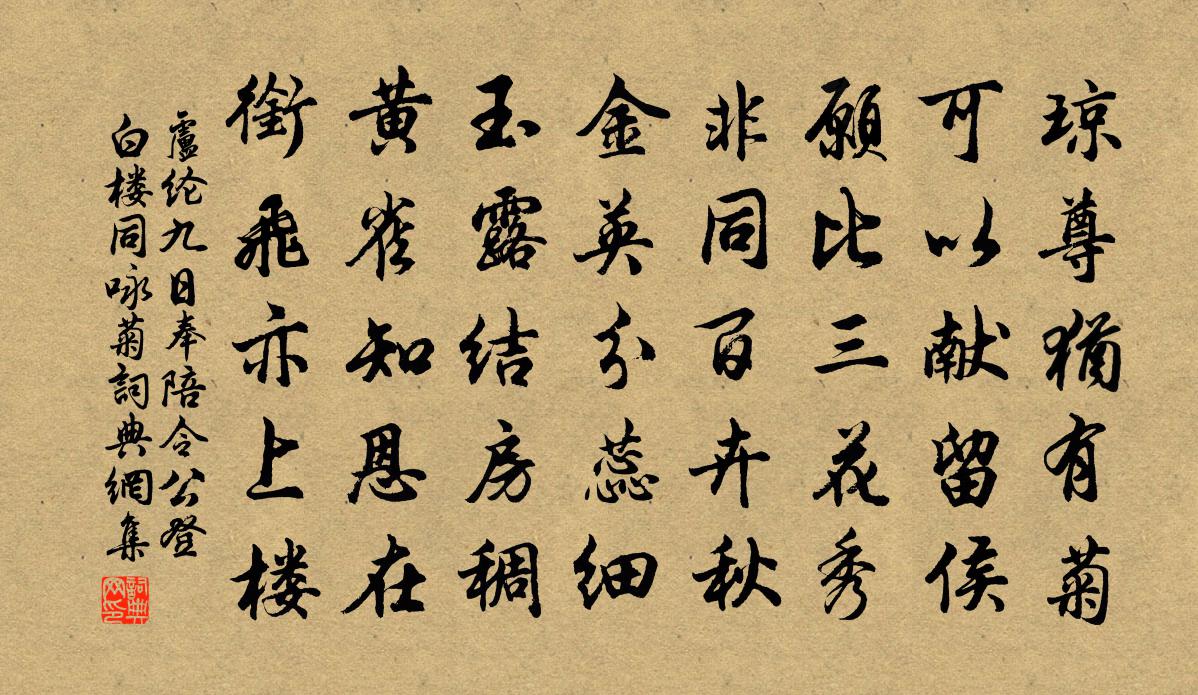 琼尊犹有菊
可以献留侯
愿比三花秀
非同百卉秋
金英分蕊细
玉露结房稠
黄雀知恩在
衔飞亦上楼
盧纶九日奉陪令公登
白楼同咏菊詞典網集
詞典
网印